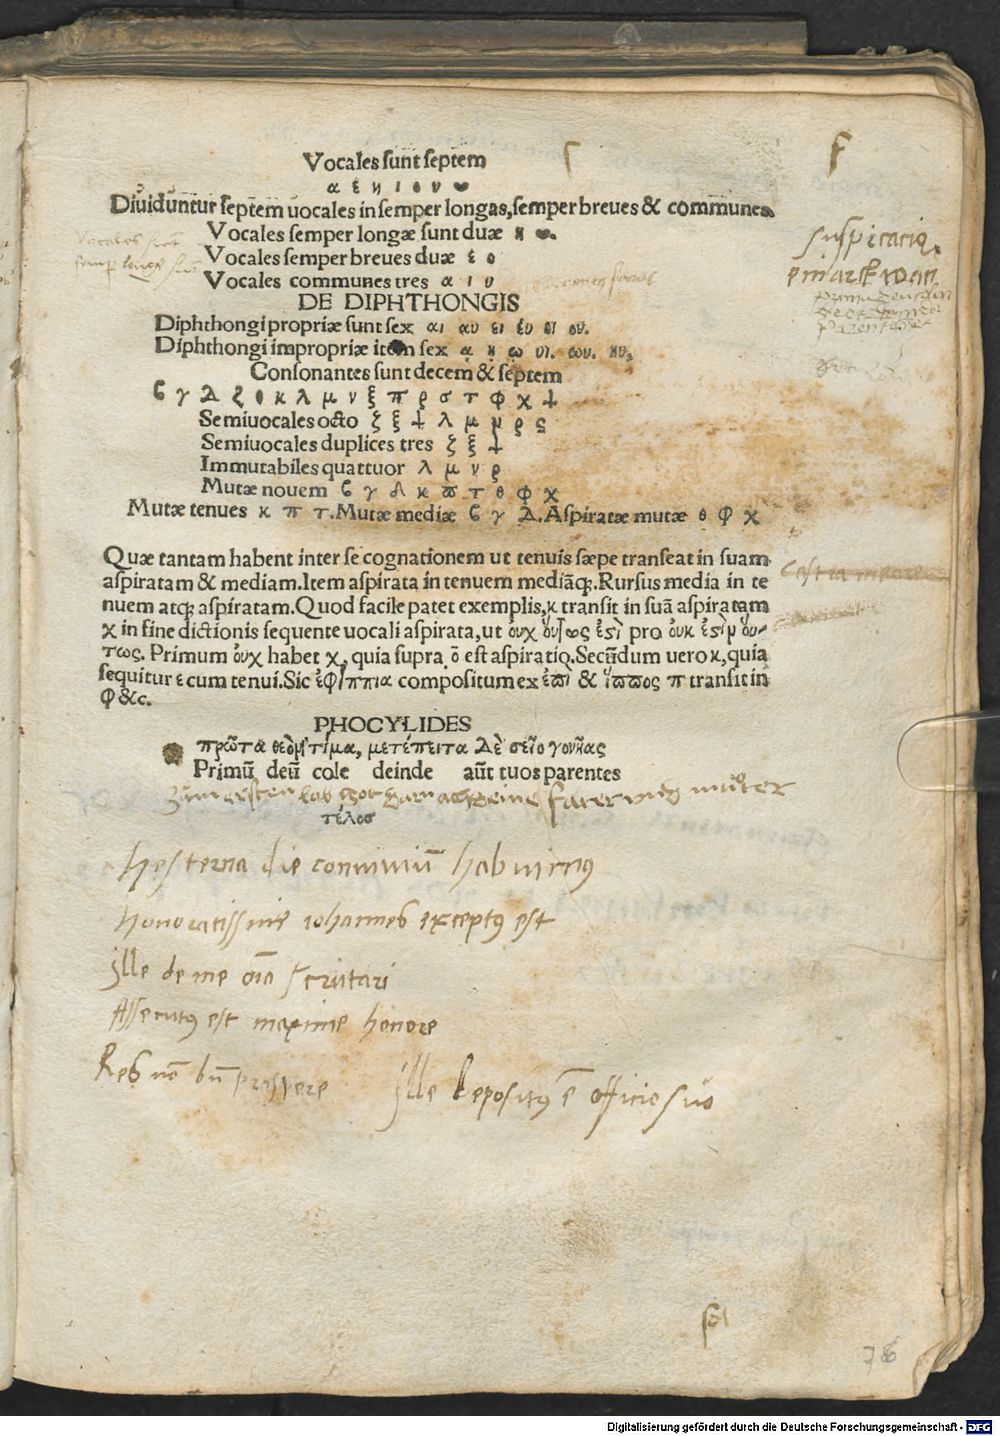 Vocales sunt septem
α ε η ι ο υ ω
Diuiduntur septem uocales in semper longas, semper breues & communes.
Vocales semper longæ sunt duæ η ω.
Vocales semper breues duæ ε ο
Vocales communes tres α ι υ
DE DIPHTHONGIS
Diphthongi propriæ sunt sex αι αυ ει ευ οι ου.
Diphthongi impropriæ item sex ᾳ ῃ ῳ υι. ωυ. ηυ.
Consonantes sunt decem & septem
ϐ γ Δ ζ θ κ λ μ ν ξ π ρ σ τ φ χ ψ
Semiuocales octo ζ ξ ψ λ μ ν ρ ς
Semiuocales duplices tres ζ ξ ψ
Immutabiles quattuor λ μ ν ρ
Mutæ nouem ϐ γ δ κ ϖ τ θ φ χ
Mutæ tenues κ π τ. Mutæ mediæ ϐ γ Δ. Aspiratæ mutæ θ φ χ
Quæ tantam habent inter se cognationem ut tenuis sæpe transeat in suam
aspiratam & mediam. Item aspirata in tenuem mediãq;. Rursus media in te
nuem atq; aspiratam. Quod facile patet exemplis, κ transit in suã aspiratam
χ in fine dictionis sequente uocali aspirata, ut οὐχ οὕτως ἐστὶ pro οὐκ ἐστὶν οὕ-
τως. Primum οὐχ habet χ, quia supra ο est aspiratio. Secũdum uero κ, quia
sequitur ε cum tenui. Sic ἐφίππια compositum ex ἐϖὶ & ἵϖϖος π transit in
φ &c.
PHOCYLIDES
πρῶτα θεὸν τίμα, μετέπειτα Δὲ σεῖο γονῆας
Primũ deũ cole deinde aũt tuos parentes
τέλοσ
hesterna die conuiuiũ habuimus
honoratissime iohannes exceptus est
ille de me oĩa scrutari
Assecutus est maxime honore
Res nõ bñ prospere ille depositus ẽ officio suo
78
Digitalisierung gefördert durch die Deutsche Forschungsgemeinschaft - DFG